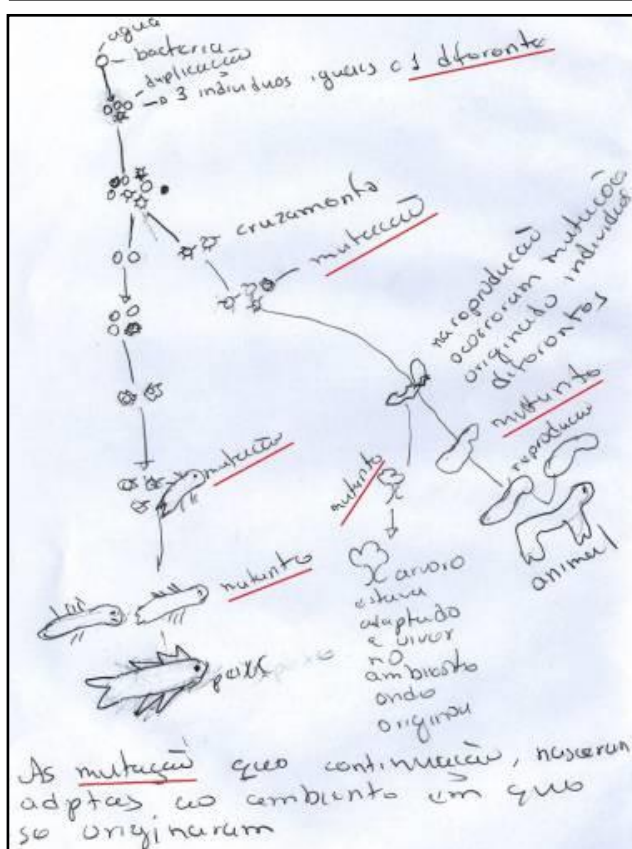 agua
bacteria
duplicação
3 individuos iguais e 1 diferente
cruzamento
mutacação
na reprodução
ocorreram mutação
originado individuos
diferentes
mutante
reprodução
animal
mutação
mutante
mutante
arvore
estava
adaptado
a viver
no
ambiente
onde
originou
peixe
peixe
As mutação que continuação, nasceram
adptas ao ambiente em que
se originaram